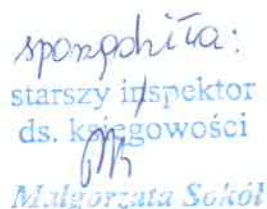 sporządziła:
starszy inspektor
ds. księgowości
Małgorzata Sokół